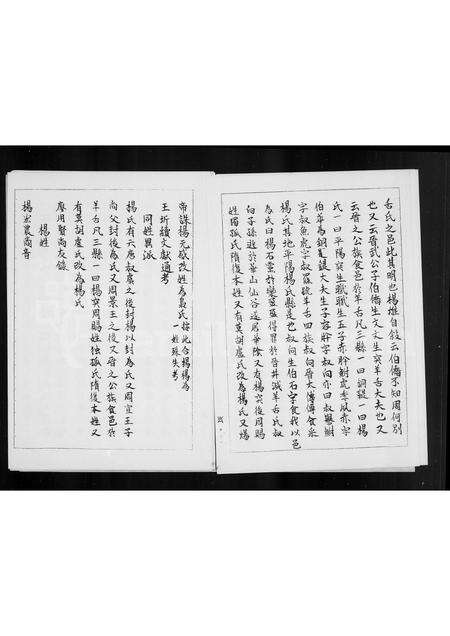 舌氏之邑此其明也楊雄自敍云伯僑不知周何別
也又云晉武公子伯僑生文文生突羊舌大夫也又
云晉之公族食邑於羊舌凡三縣一曰銅鞮一曰楊
氏一曰平陽突生職職生五子赤肸鮒虎季夙赤字
伯華為銅鞮大夫生子容肸字叔向亦曰叔譽鮒
字叔魚虎字叔羆號羊舌四族叔向晉太傅食采
楊氏其地平陽楊氏縣是也叔向生伯石字食我以邑
為氏曰楊石黨於欒盈盈得罪於晉并滅羊舌氏叔
向子孫逃於華山仙谷遂居華陰又有楊突後周賜
姓獨孤氏隋復本姓又有莫胡盧氏改為楊氏又煬
帝誅楊元感改姓為梟氏 按此合揚楊為一姓殊失考
王圻續文獻通考
同姓異派
楊氏有六唐叔虞之後封楊以封為氏又周宣王子
尚父封後為氏又周景王之後又晉之公族食邑於
羊舌凡三縣一曰楊突周賜姓獨孤氏隋復本姓又
有莫胡盧氏改為楊氏
廖用賢尚友錄
楊姓
楊宏農商音